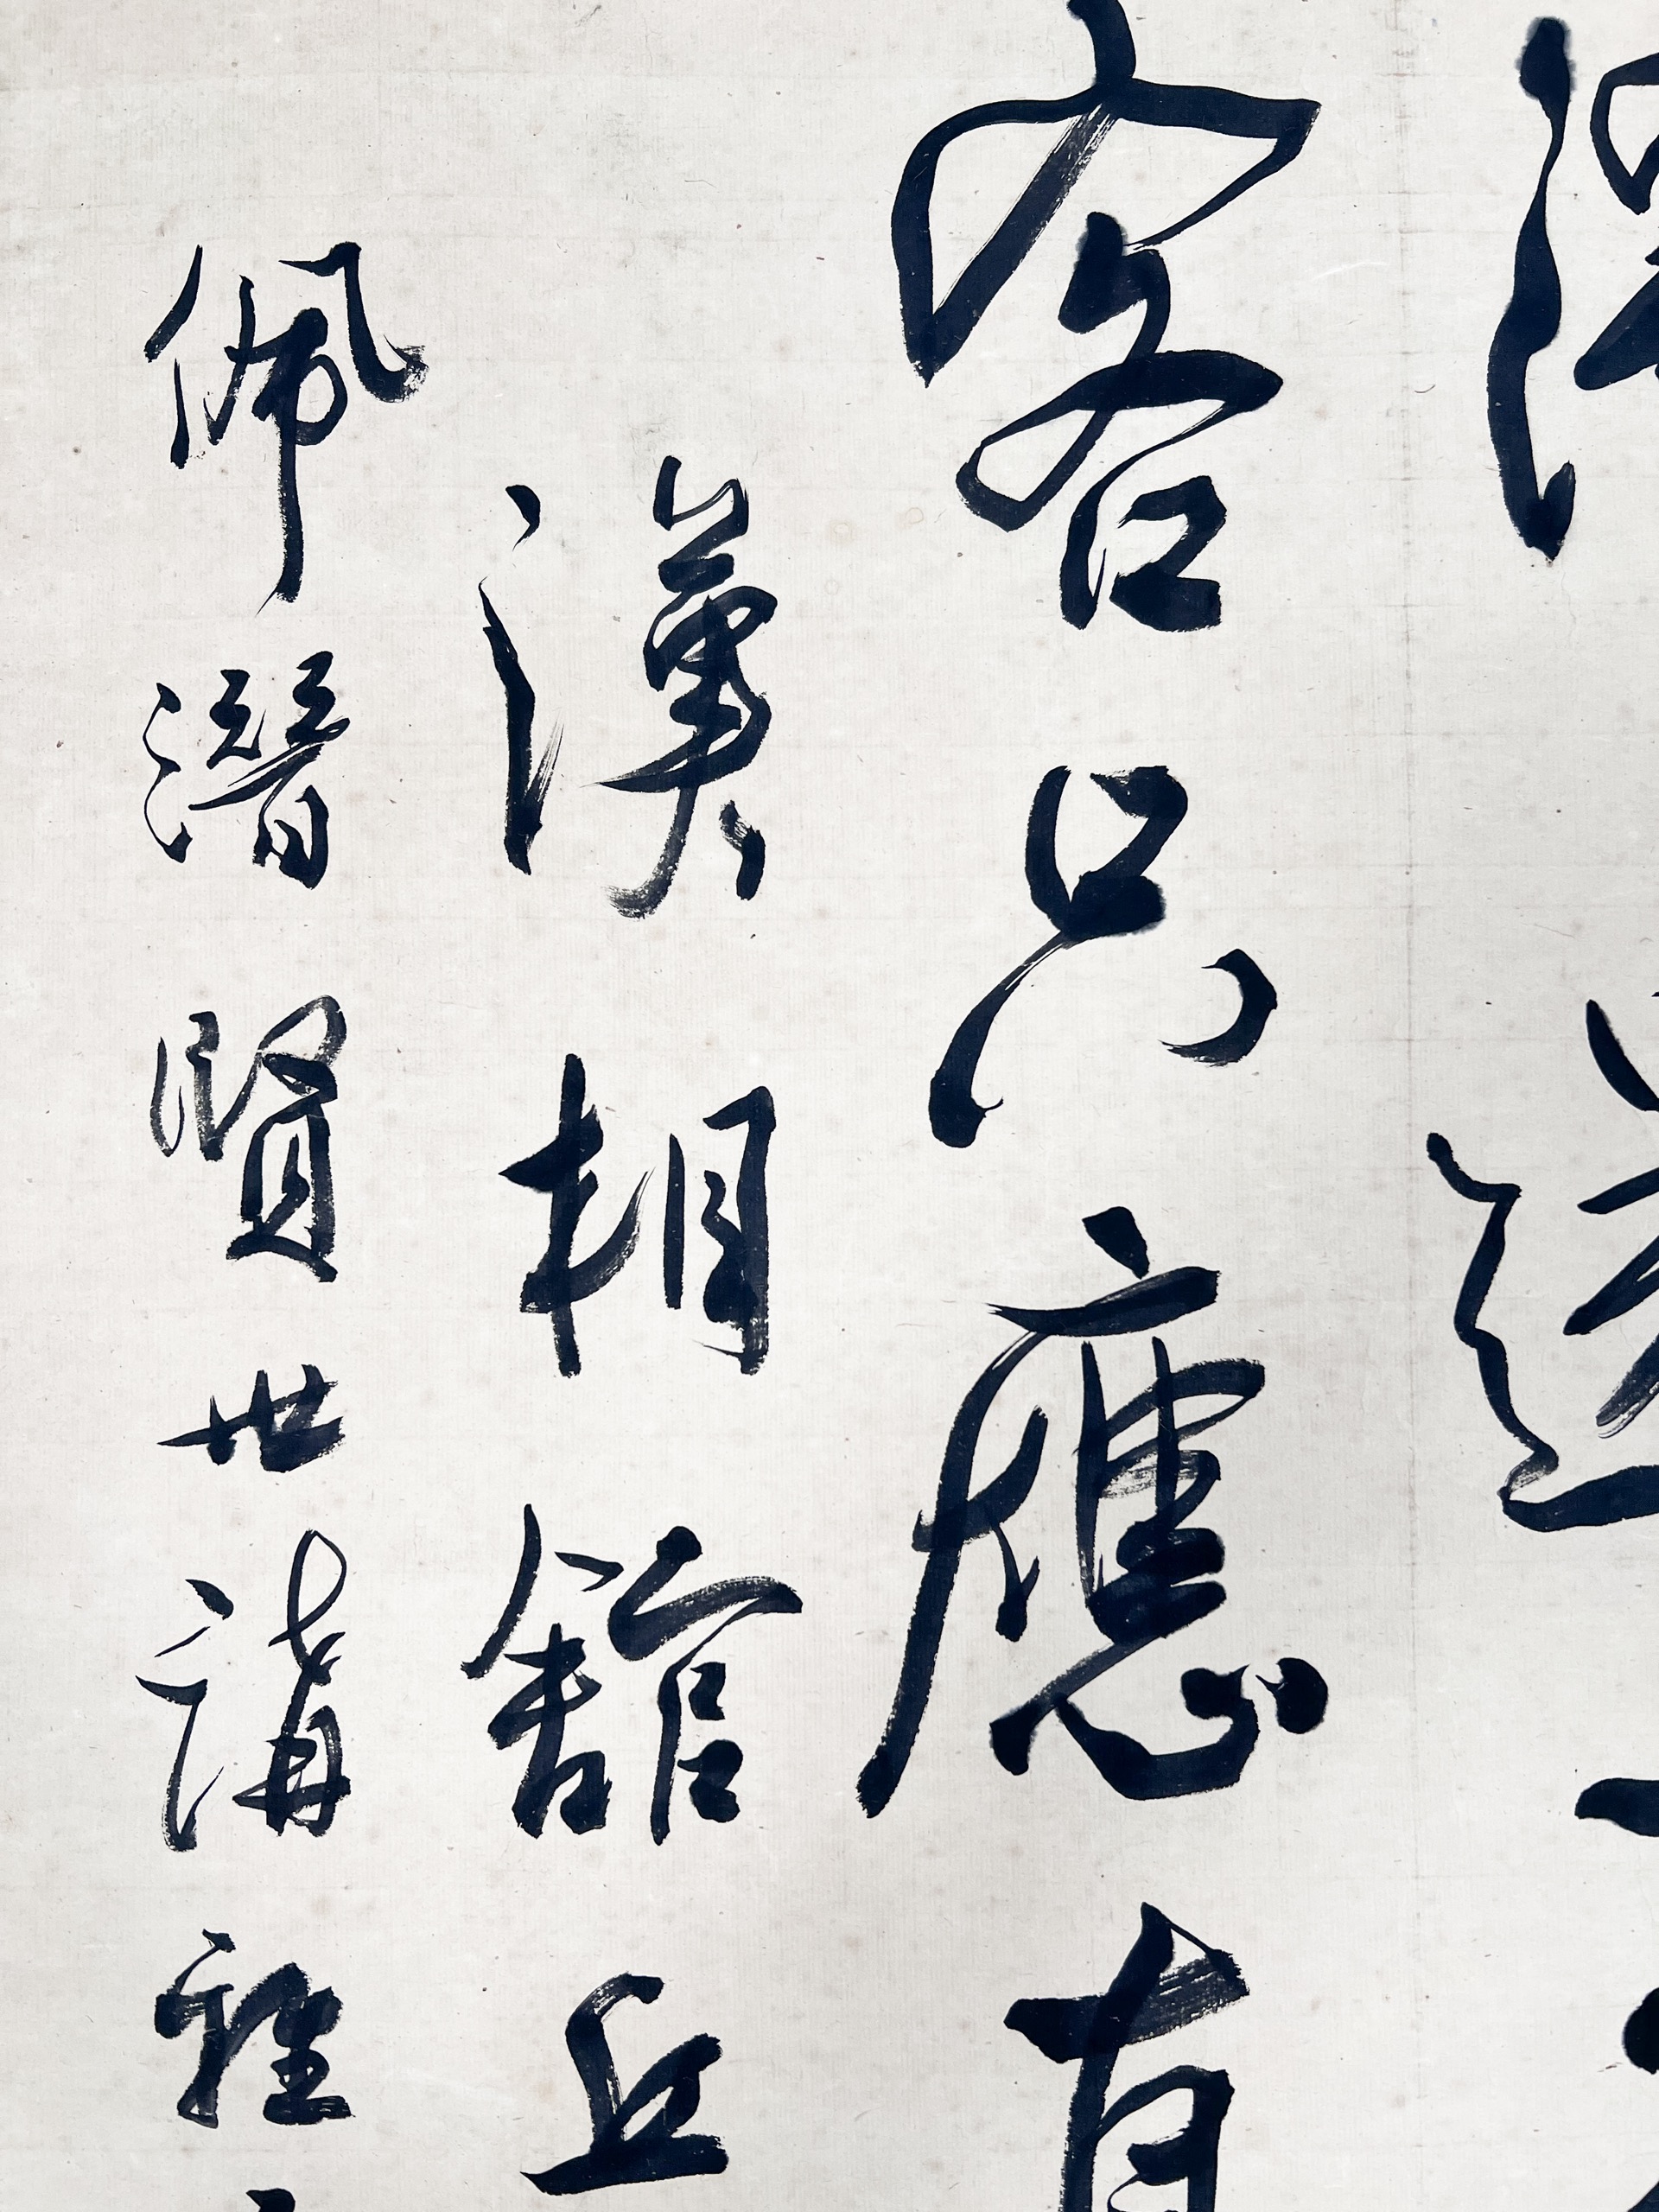 客只應有
漢相館丘
佩潛賢世講雅